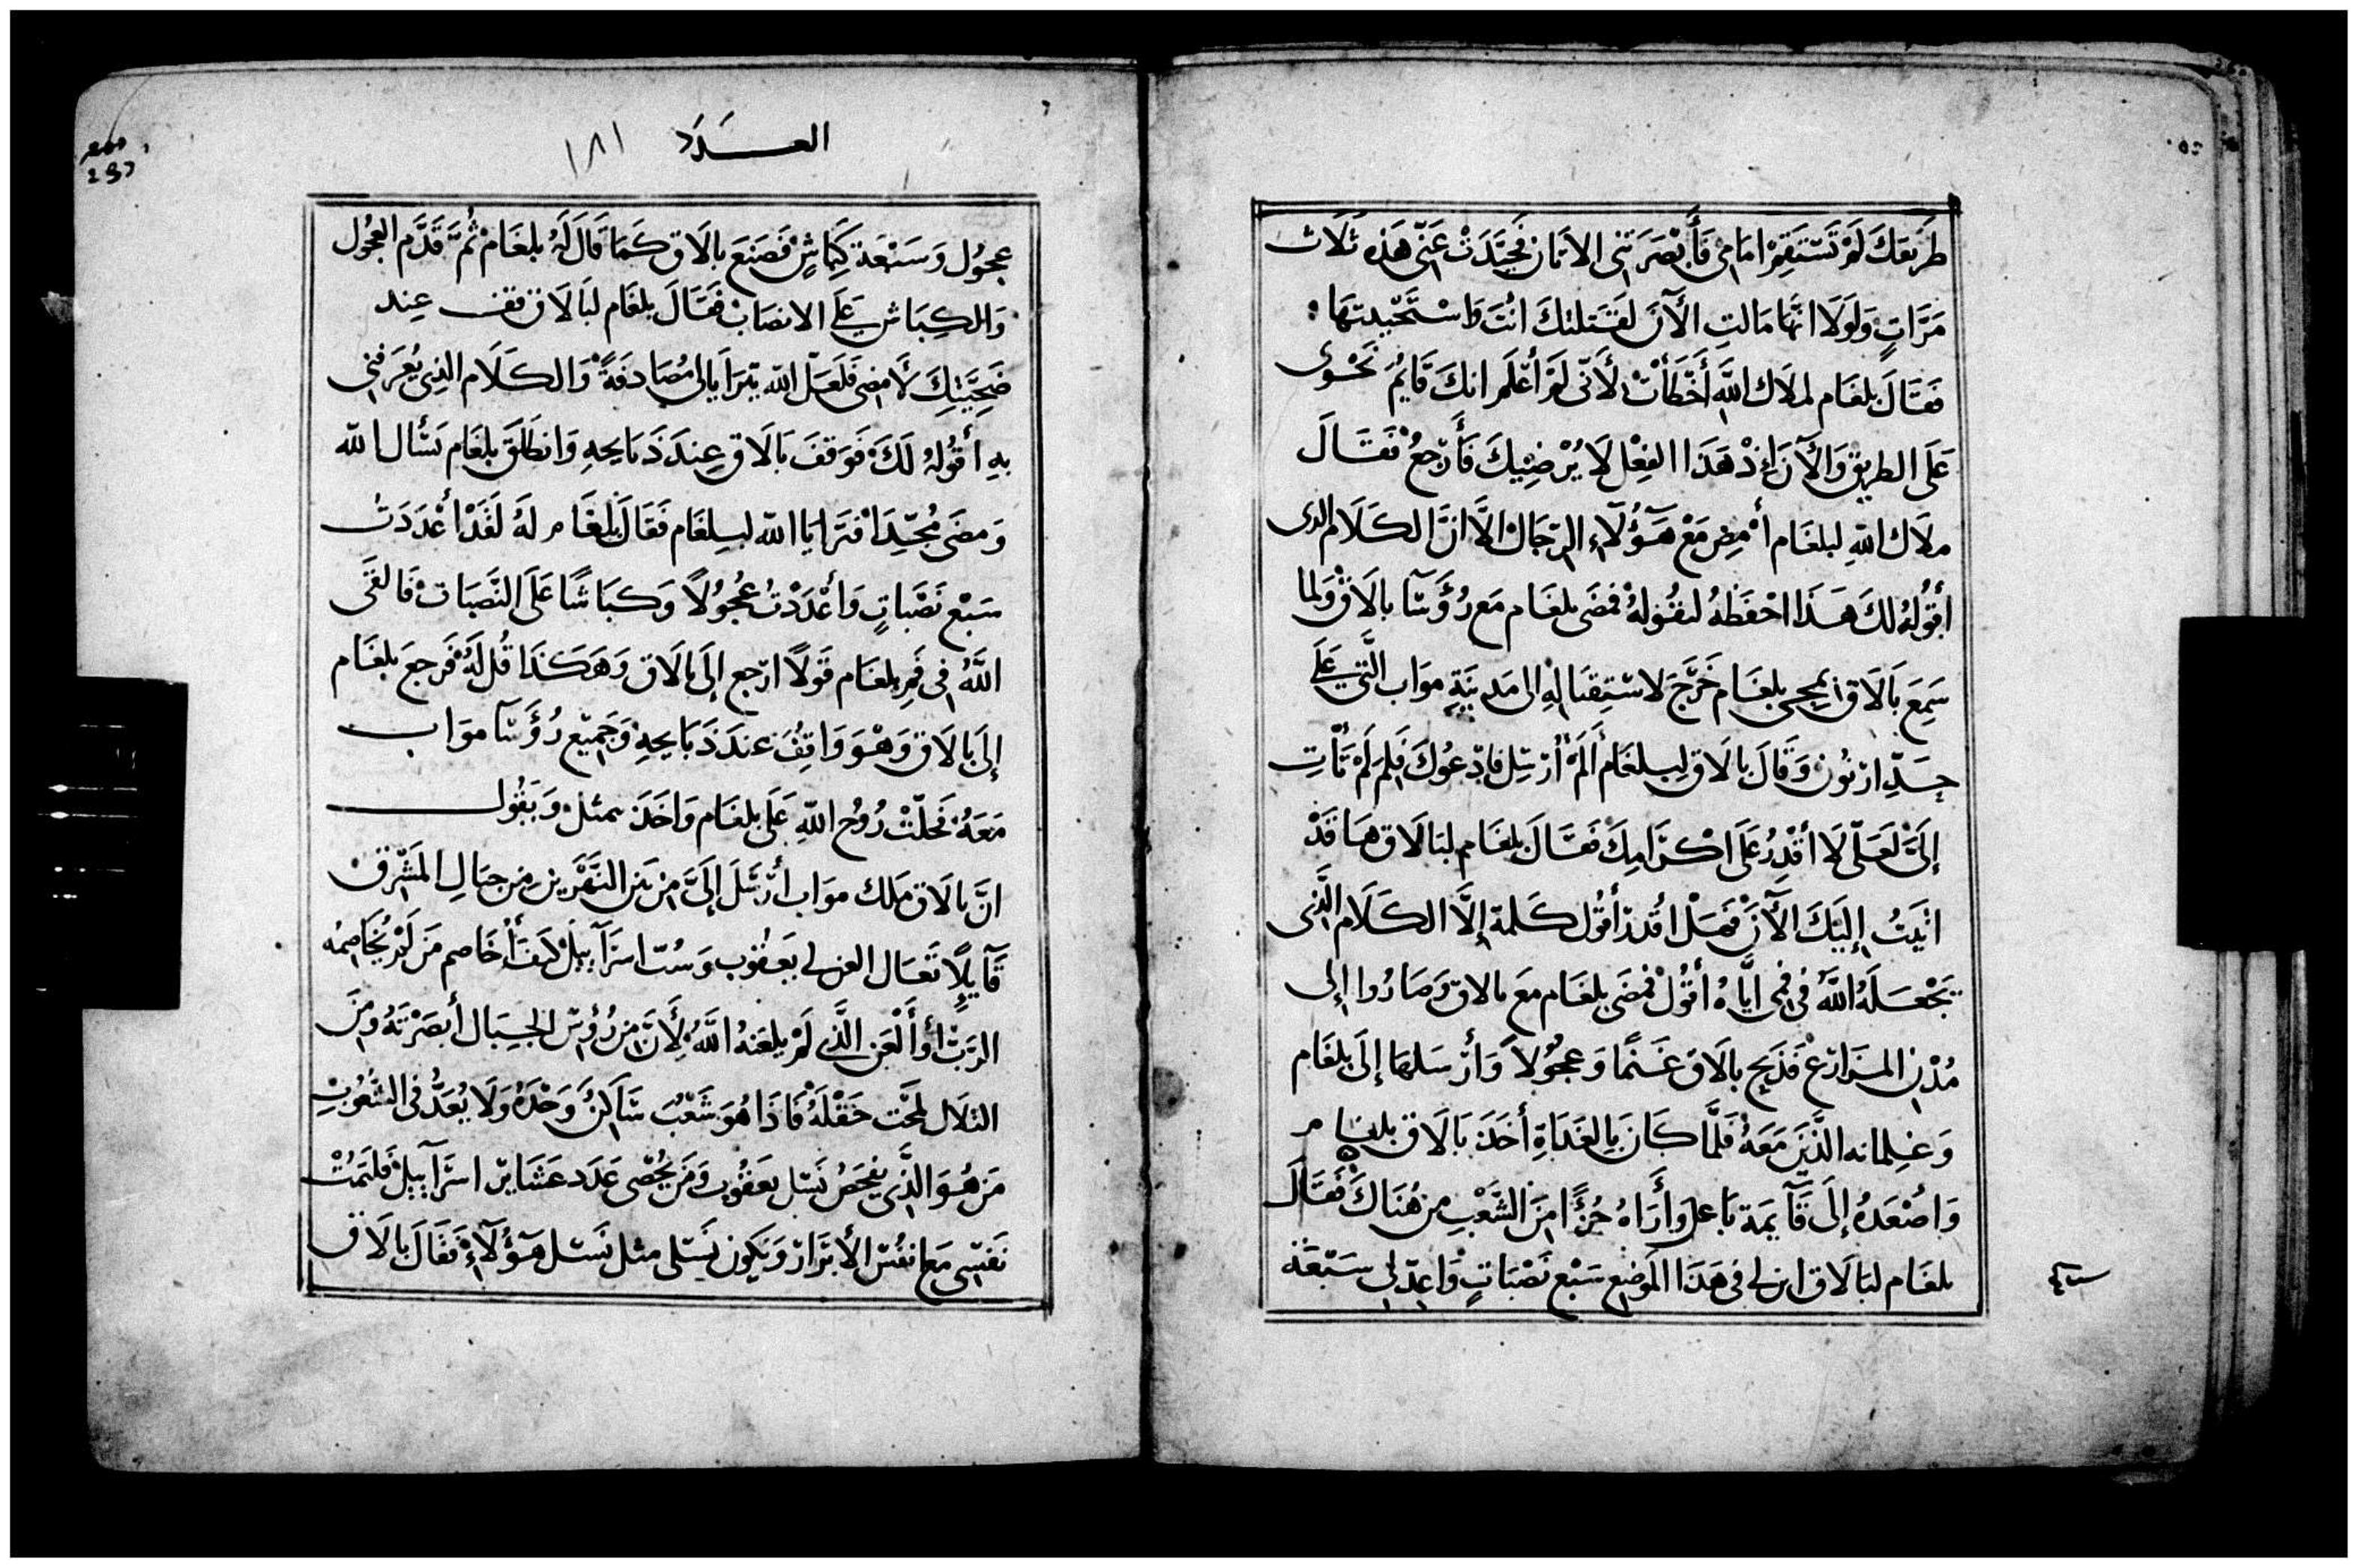 طَرِيقَكَ لَمْ تَسْتَقِمْ امَامِى فَأَبْصَرَتنِى الاتَان فَحَيَّدَتْ عَنِّى هَذِه ثَلَاث
مَرَّاتٍ وَلَولَا انَّهَا مَالتِ الآنَ لَقَتَلتكَ انْتَ وَاسْتَحْييتهَا
فَقَالَ بلعَام لملَاك اللَّهِ أَخْطَأْتُ لأَنِّى لَمْ أَعْلَم انكَ قَايمٌ نَحْوِى
عَلَى الطريق وَالآنَ إِذْ هَذَا الفِعْل لَا يُرْضِيْكَ فَأَرْجعُ فَقَالَ
ملَاك اللهِ لبلعَام أَمْضِ مَعْ هَؤُلَآءِ الرِّجَال الَّا انَّ الكَلَام الدى
أَقُولهُ لكَ هَذَا احْفَظهُ لتقُولهُ فَمضَى بلعَام مَع رُؤَسَآ بالَاق وَلما
سَمِعَ بَالَاق بمجى بلعَام خَرَجَ لاسْتِقبَالهِ الى مَدِينَةِ موَاب الَّتِي عَلَى
حَدِّ ارنُون وَقَالَ بالَاق لبلعَام أَلَمْ أُرْسِل فادْعُوكَ فَلِمَ لَمْ تَأْتِ
إِلَيَّ لَعَلِّي لَا أَقْدِرُ عَلَى اكْرَامِكَ فَقَالَ بلعَام لبَالَاق هَا قَدْ
اتَيتُ إِلَيْكَ الآنَ فَهَلْ اقْدر أَقُول كَلمة إِلَّا الكَلَام الَّذِى
يَجْعَلَهُ اللَّهُ فِى فمِى ايَّاهُ أَقُولُ فَمَضَى بلعَام مَع بالاق وَصَارُوا إِلى
مُدْنِ المَزَارعْ فَذَبح بالَاق غَنَمًا وَعجُولاً وَأَرْسَلهَا إِلَى بلعَام
وَغِلمانه الَّذِينَ مَعَهُ فَلَمَّا كَانَ بِالغَدَاةِ أَخَذَ بَالَاق بلعَام
وَاصْعَدَهُ إِلَى قَآيمَة بَاعل وأَرَاهُ جُزْءًا مِنَ الشَّعْبِ مِن هُنَاكَ فَقَالَ
بلعَام لبَالَاق ابن لى فى هَذَا المَوْضِع سَبْع نَصْبَاتٍ وَاعِدّ لِى سَبْعَة
العَدَد ١٨١
عجُول وَسَبْعَة كِبَاشٍ فَصَنعَ بالَاق كَمَا قَالَ لَهُ بلعَام ثُمَّ قَدَّم العجُول
وَالكِبَاش عَلَى الانصَاب فَقَالَ بلعَام لبَالَاق قف عِند
ضَحِيَّتِكَ لأَمضِى فَلَعَلّ الله يَترَايَا لى مُصَادفَةً وَالكَلَام الذِى يُعَرفنِى
بهِ أَقُولهُ لَكَ فَوَقفَ بَالَاق عِندَ ذَبَايحهِ وَانطَلَقَ بلعَام يَسْأل الله
وَمضَى مُجِدًّا فَترَايَا الله لبلعَام فَقَالَ بلعَام لهُ لَقَدْ أَعْدَدَتُ
سَبْع نَصْبَاتٍ وَأَعْدَدْتُ عُجُولاً وَكبَاشًا عَلَى النَّصَبَات فَالقَى
اللَّهُ فِى فَمِ بلعَام قَولاً ارْجع إِلَى بالَاق وَهَكَذَا قُل لَهُ فَرجعَ بلعَام
إِلَى بَالَاق وَهْوَ وَاقِفٌ عندَ ذَبَايحهِ وَجَمِيْع رُؤَسَآ موَاب
مَعَهُ فَحَلَّتْ رُوُح اللهِ عَلَى بلعَام وَاخَذَ يمثل وَيَقُول
انَّ بالَاق مَلك موَاب أَرْسَلَ إِلَيَّ مِن بَين النَّهْرَين مِن جبَال المَشْرِق
قَآيلاً تَعَال العن لى يَعقُوب وَسُبّ اسرَآييلْ كَيفَ أُخَاصم مَن لَمْ يُخَاصمهُ
الرَّبّ أَو أَلْعَن الَّذِى لَمْ يلعَنهُ اللَّهُ لأَنَّ مِن رُؤُس الجبَال أَبصَرْتَهُ وَمِنَ
التلَال لمحَت حَقْلَهُ فَاذَا هُوَ شَعْبٌ سَاَكنٌ وَحْدَهُ وَلَا يُعَدُّ فى الشُعُوبِ
مَن هُوَ الَّذِى يفحَصُ نَسْل يَعقُوب وَمَن يُحْصِى عَدَد عَشَاير اسرَآييلْ فَلتَمُتْ
نَفسِى مَع انفُس الأَبرَار وَيَكون نَسْلى مثل نَسْل هَؤُلَآءْ فَقَالَ بالَاق